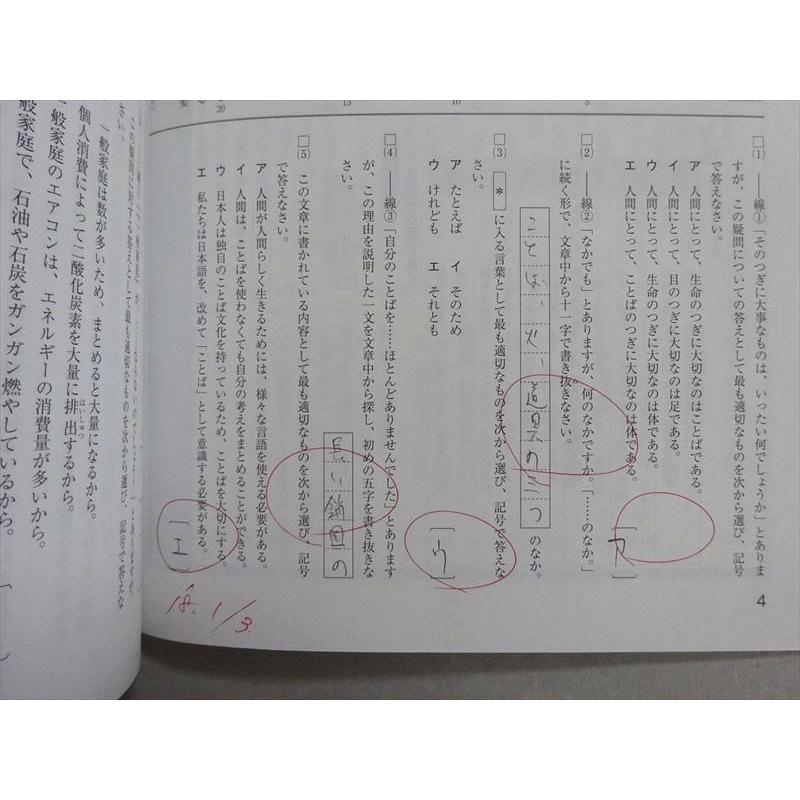 4
□(1) ――線①「そのつぎに大事なものは、いったい何でしょうか」とありま
すが、この疑問についての答えとして最も適切なものを次から選び、記号
で答えなさい。
ア 人間にとって、生命のつぎに大切なのはことばである。
イ 人間にとって、目のつぎに大切なのは足である。
ウ 人間にとって、生命のつぎに大切なのは体である。
エ 人間にとって、ことばのつぎに大切なのは体である。
[ア]
□(2) ――線②「なかでも」とありますが、何のなかですか。「……のなか。」
に続く形で、文章中から十一字で書き抜きなさい。
ことば、火、道具の三つ のなか。
□(3) * に入る言葉として最も適切なものを次から選び、記号で答えな
さい。
ア たとえば イ そのため
ウ けれども エ それとも
[ウ]
□(4) ――線③「自分のことばを……ほとんどありませんでした」とあります
が、この理由を説明した一文を文章中から探し、初めの五字を書き抜きな
さい。
長い鎖国の
□(5) この文章に書かれている内容として最も適切なものを次から選び、記号
で答えなさい。
ア 人間が人間らしく生きるためには、様々な言語を使える必要がある。
イ 人間は、ことばを使わなくても自分の考えをまとめることができる。
ウ 日本人は独自のことば文化を持っているため、ことばを大切にする。
エ 私たちは日本語を、改めて「ことば」として意識する必要がある。
[エ]
1/3.
5
10
15
20
この疑問に対する答えとして最も適切なものを次から選び、記号で答えな
さい。
一般家庭は数が多いため、まとめると大量になるから。
個人消費によって二酸化炭素を大量に排出するから。
はいしゅつ
一般家庭のエアコンは、エネルギーの消費量が多いから。
般家庭で、石油や石炭をガンガン燃やしているから。